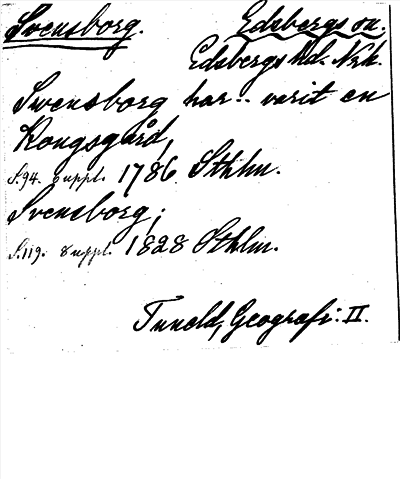 Svensborg.
Edsbergs sn.
Edsbergs hd. Nrk.
Swensborg har .. varit en
Kongsgård,
S. 94. suppl. 1786. Sthlm.
Svensborg;
S. 119. suppl. 1828 Sthlm.
Tuneld, Geografi: II.